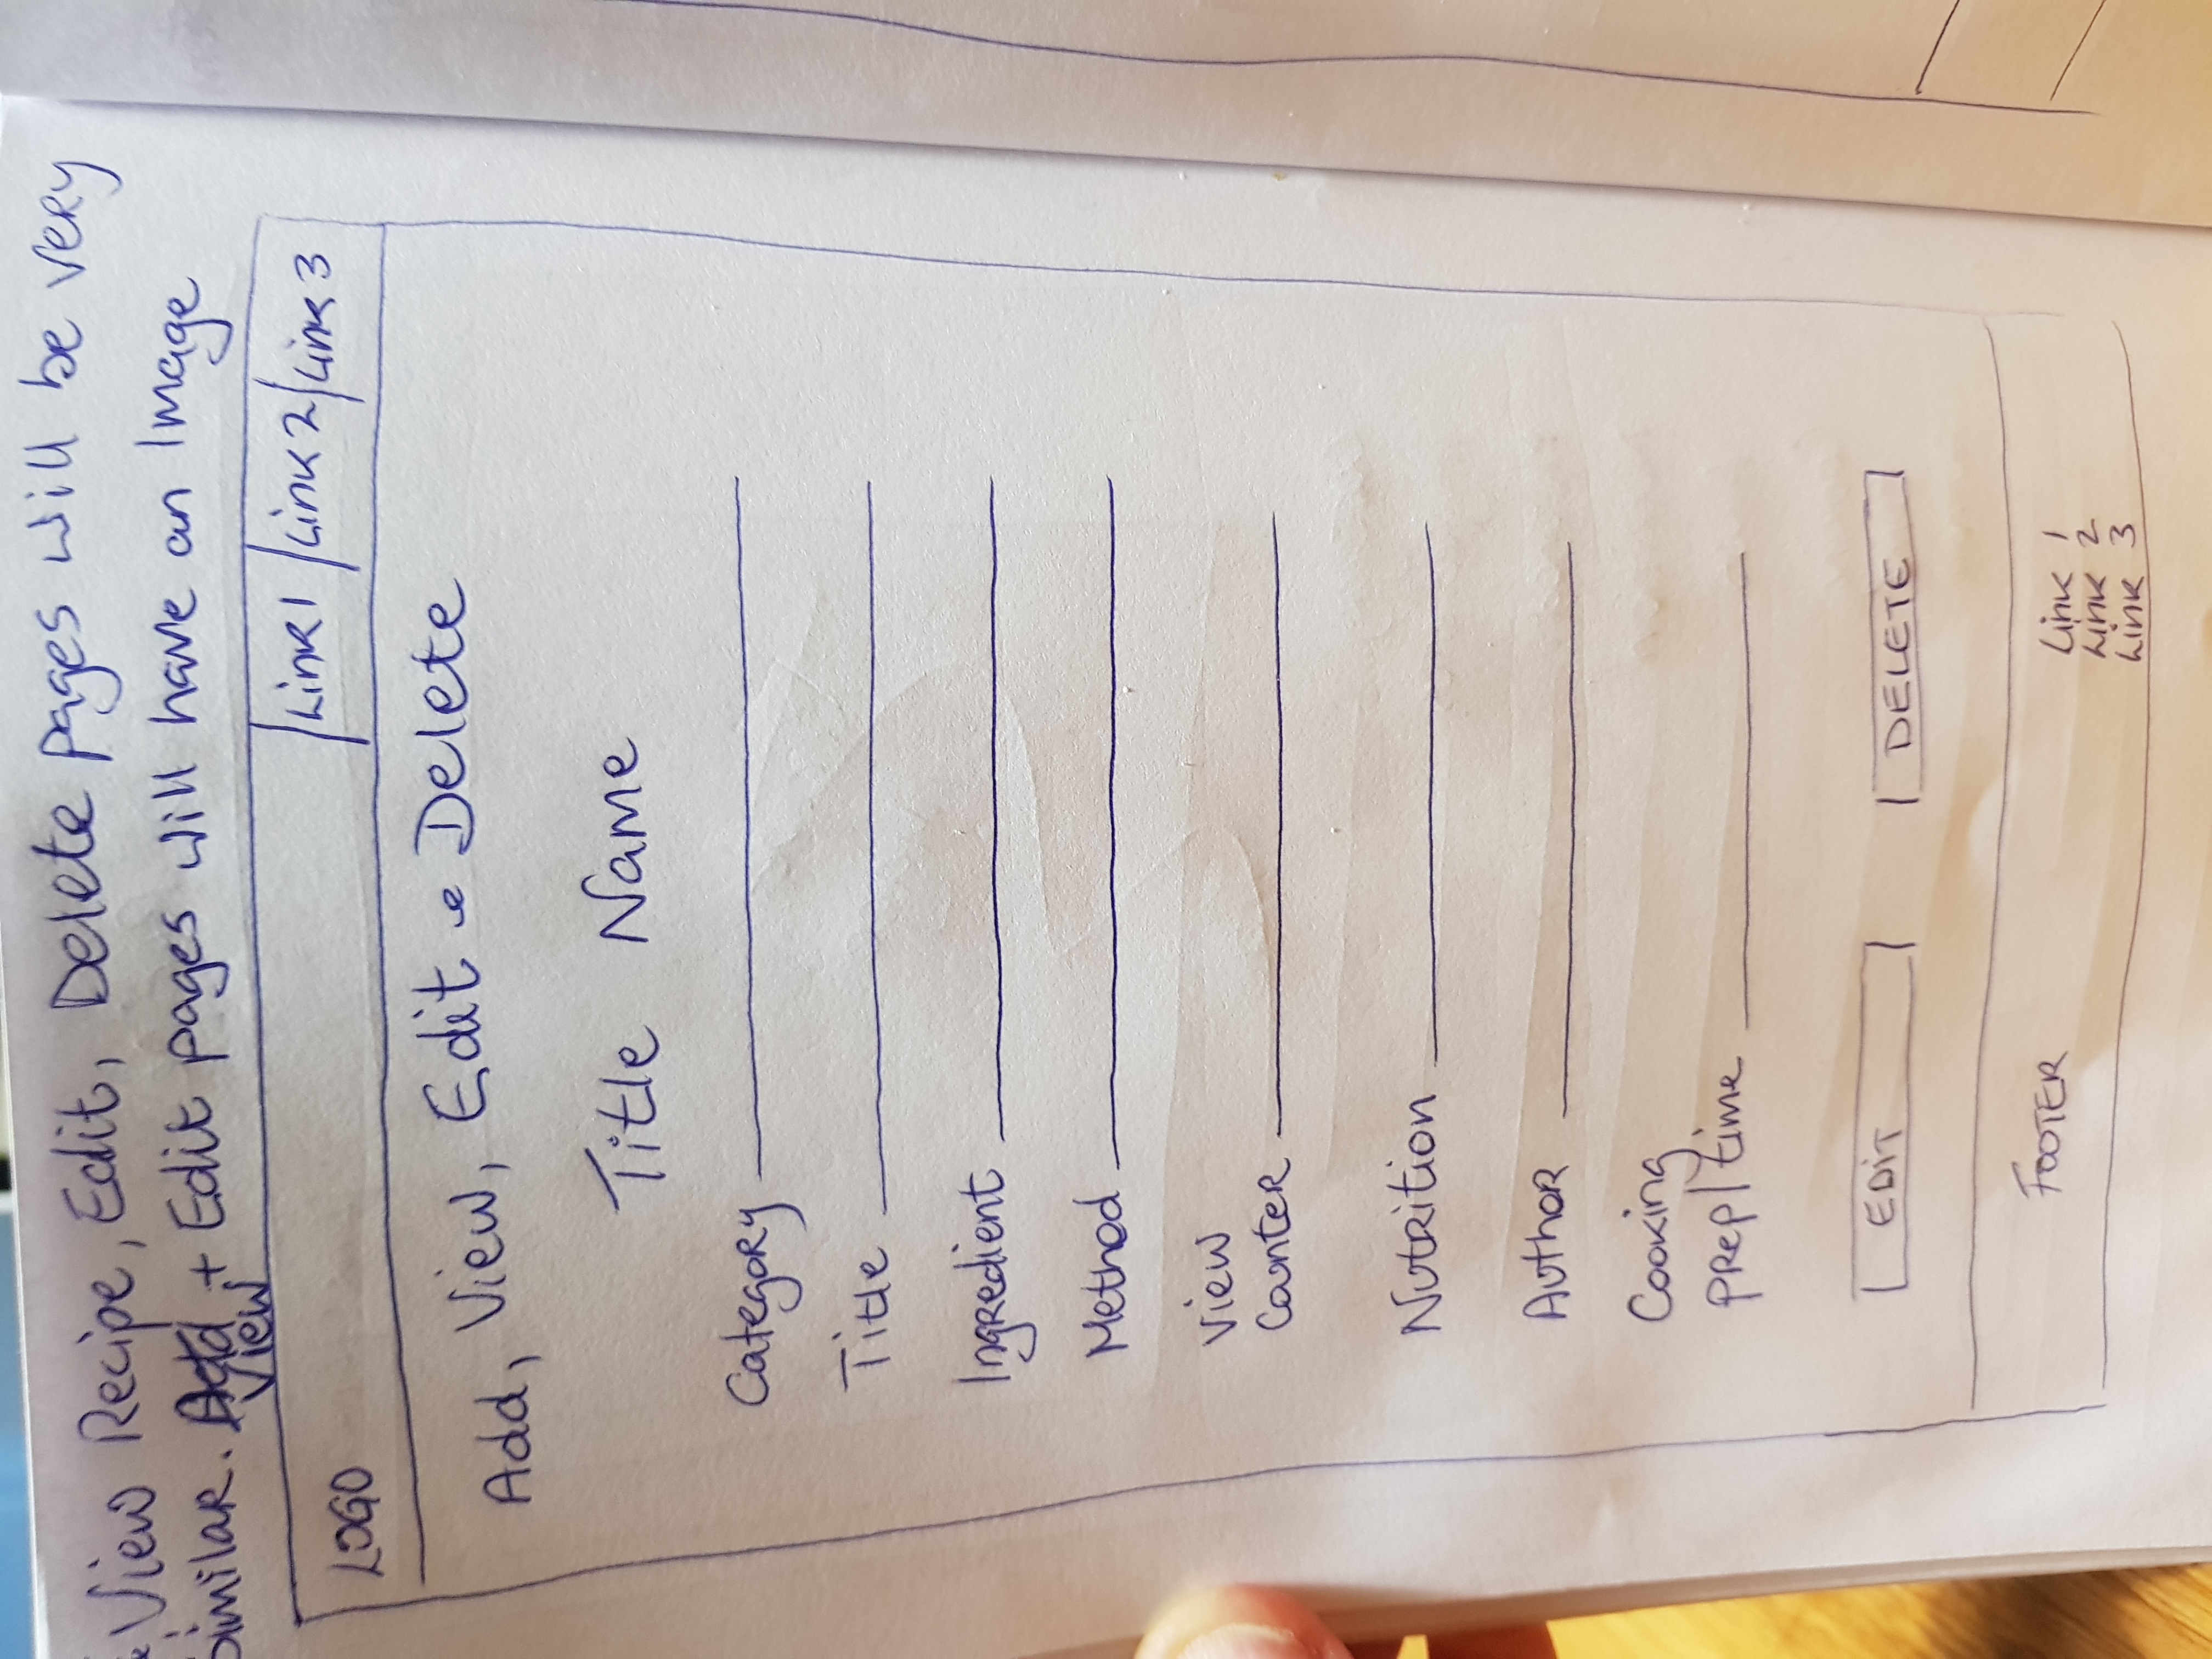 View Recipe, Edit, Delete pages will be very
similar. Add + Edit pages will have an Image
View
LOGO Link1 Link 2 Link 3
Add, View, Edit e Delete
Title Name
Category
Title
Ingredient
Method
View
Counter
Nutrition
Author
Cooking
prep/time
EDIT DELETE
FOOTER
Link 1
Link 2
Link 3